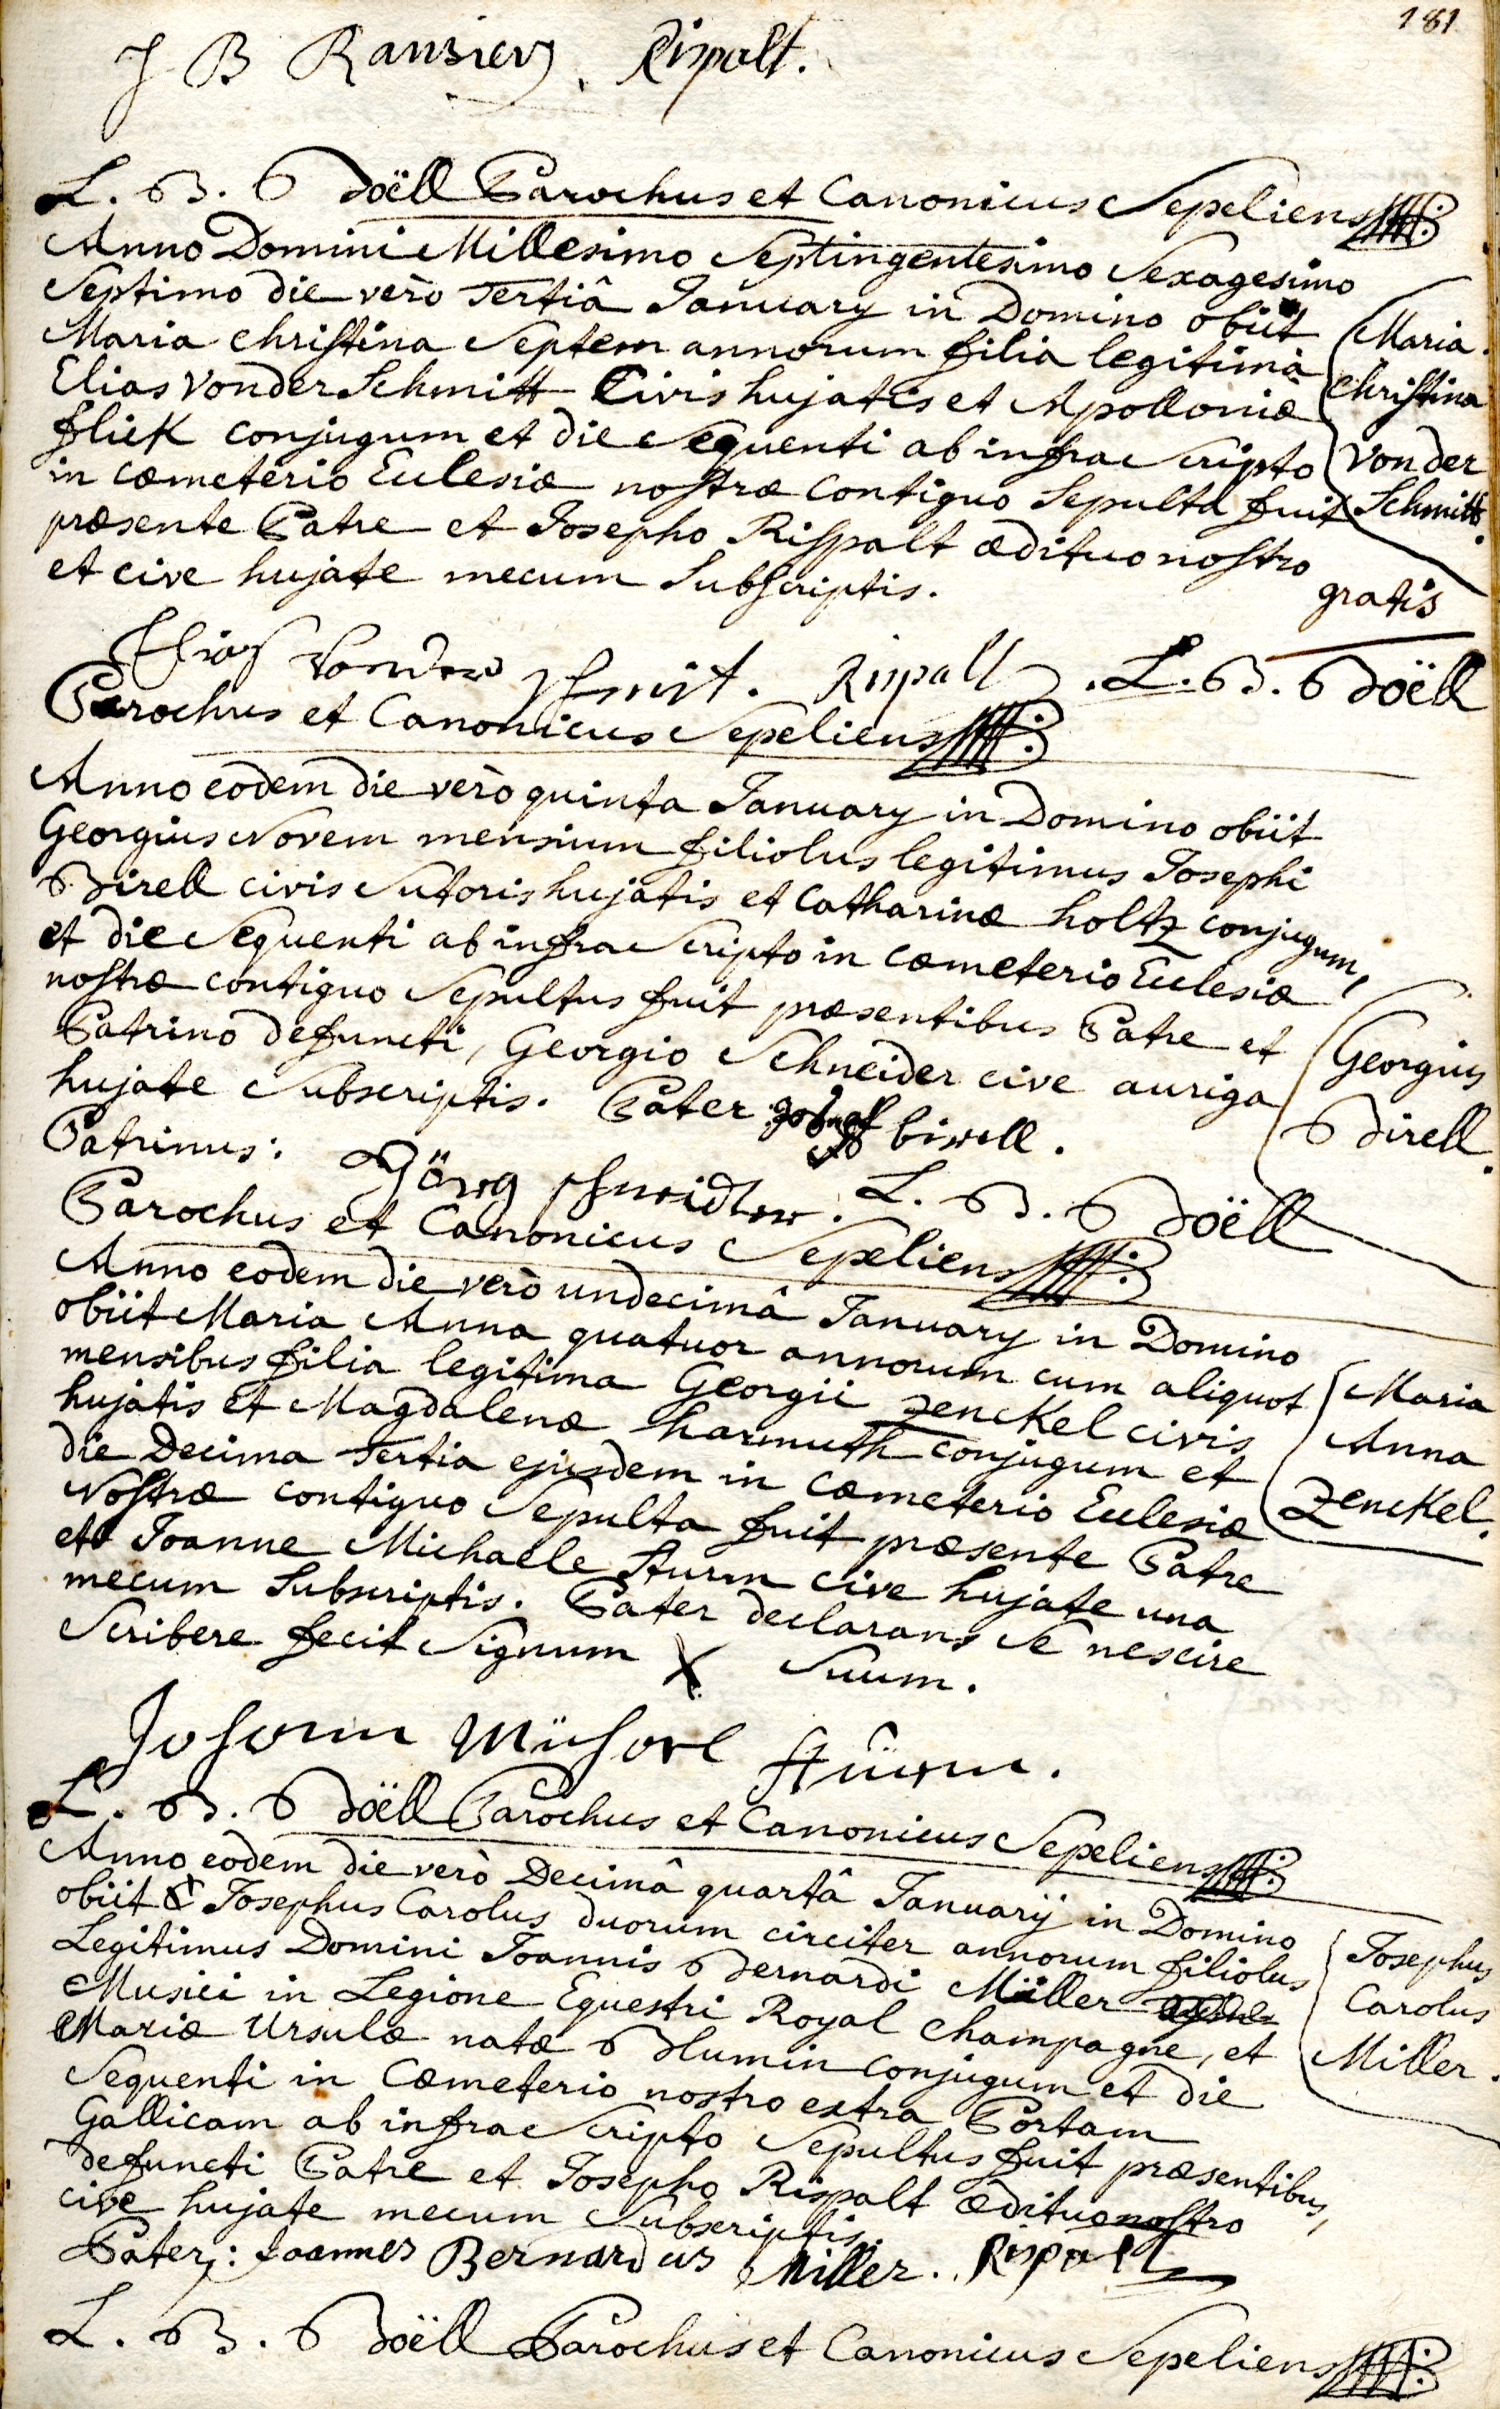 181
J B Ransien, Rispalt.
L. B. Boëll Parochus et Canonicus Sepeliens
Anno Domini Millesimo Septingentesimo Sexagesimo
Septimo die verò tertiâ January in Domino obiit
Maria Christina Septem annorum filia legitima
Elias Vonder Schmitt Civis hujatis et Apolloniæ
flick conjugum et die Sequenti ab infra Scripto
in cæmeterio Ecclesiæ nostræ contiguo Sepulta fuit
præsente Patre et Josepho Rispalt ædituo nostro
et cive hujate mecum Subscriptis.
Maria
Christina
Vonder
Schmitt.
gratis
Elias Vonder Schmit. Rispalt. L. B. Boëll
Parochus et Canonicus Sepeliens
Anno eodem die verò quinta January in Domino obiit
Georgius Novem mensium filiolus legitimus Josephi
Birell civis Sutoris hujatis et Catharinæ holtz conjugum,
et die Sequenti ab infra Scripto in cæmeterio Ecclesiæ
nostræ contiguo Sepultus fuit præsentibus Patre et
Patrino defuncti, Georgio Schneider cive auriga
hujate Subscriptis. Pater birell.
Patrinus: Görg Schneider. L. B. Boëll
Parochus et Canonicus Sepeliens
Georgius
Birell.
Anno eodem die verò undecimâ January in Domino
obiit Maria Anna quatuor annorum cum aliquot
mensibus filia legitima Georgii Zenckel civis
hujatis et Magdalenæ harmuth conjugum et
die Decima tertia ejusdem in cæmeterio Ecclesiæ
Nostræ contiguo Sepulta fuit præsente Patre
et Joanne Michaele Sturm cive hujate una
mecum Subscriptis. Pater declarans Se nescire
Scribere fecit Signum X Suum.
Maria
Anna
Zenckel.
Johann Michael Stürm.
L. B. Boëll Parochus et Canonicus Sepeliens
Anno eodem die verò Decimâ quartâ Januarÿ in Domino
obiit Josephus Carolus duorum circiter annorum filiolus
Legitimus Domini Joannis Bernardi Miller
Musici in Legione Equestri Royal Champagne, et
Mariæ Ursulæ natæ Blumin conjugum et die
Sequenti in Cæmeterio nostro extra Portam
Gallicam ab infra Scripto Sepultus fuit præsentibus,
defuncti Patre et Josepho Rispalt ædituo nostro
cive hujate mecum Subscriptis.
Josephus
Carolus
Miller.
Pater: Joannes Bernardus Miller. Rispalt
L. B. Boëll Parochus et Canonicus Sepeliens